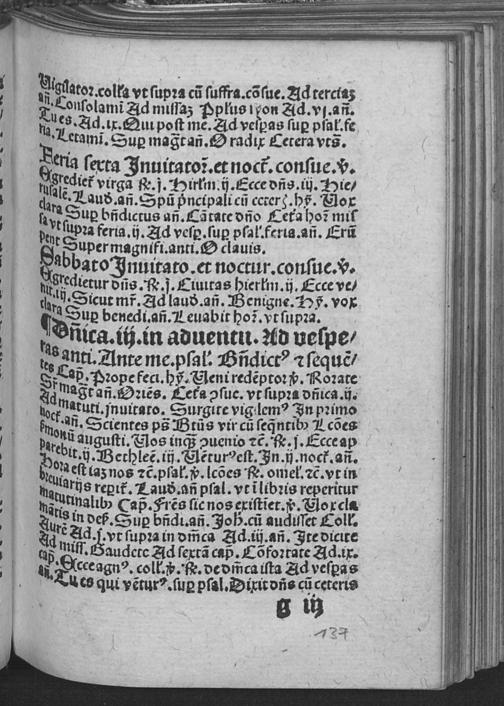 Uigilator. coll̃a vt supra cũ suffra. cõsue. Ad terciaz
añ. Consolami Ad missaz Pp̃lus syon Ad. vj. añ.
Tu es. Ad. ix. Qui post me. Ad vesp̃as sup̱ psal̃. fe
ria. Letami. Sup̱ mag̃t añ. O radix Cetera vts̃.
Feria sexta Inuitatoꝛ. et noct̃. consue. v̊.
Egrediet̃ virga ℟. j. Hirlm̃. ij. Ecce dñs. iij. Hie/
rusalẽ. Laud. añ. Spũ p̃ncipali cũ ceteꝛ. hỹ. Uox
clara Sup̱ bñdictus añ. Cãtate dño Cet̃a hoꝛ̃ mis
sa vt supra feria. ij. Ad vesp̱. sup̱ psal̃. feria. añ. Erũ
pent Super magnifi. anti. O clauis.
Sabbato Inuitato. et noctur. consue. v̊.
Egredietur dñs. ℟. j. Ciuitas hierlm̃. ij. Ecce ve/
nit. ij. Sicut mr̃. Ad laud. añ. Benigne. Hỹ. vox
clara Sup̱ benedi. añ. Leuabit hoꝛ̃. vt supra.
¶ Dñica. iij. in aduentu. Ad vespe/
ras anti. Ante me. psal̃. Bñdictꝰ ⁊ sequẽ/
tes Cap̃. Prope feci. hỹ. Ueni redẽptoꝛ v̊. Rorate
Sr̃ mag̃t añ. Oriẽs. Cet̃a ꝯsue. vt supra dñica. ij.
Ad matuti. jnuitato. Surgite vigilemꝰ In primo
noct̃. añ. Scientes ps̃ Btũs vir cũ seqñtibꝰ Lc̃oes
s̃monũ augusti. Uos inq̃ ꝯuenio ⁊c̃. ℟. j. Ecce ap
parebit. ij. Bethleẽ. iij. Uẽturꝰ est. In. ij. noct̃. añ.
Hora est iaz nos ⁊c̃. psal̃. v̊. lc̃oes ℟. omel̃. ⁊c̃. vt in
breuiarijs reperit̃. Laud. añ psal. vt ĩ libris reperitur
matutinalibꝰ Cap̃. Frẽs sic nos existiet. v̊. Uox cla
mãtis in des̃. Sup̱ bñdi. añ. Joh̃. cũ audisset Coll̃.
Aurẽ Ad. j. vt supra in dm̃ca Ad. iij. añ. Ite dicite
Ad miss̃. Gaudete Ad sextã cap̃. Cõfortate Ad. ix.
cap̃. Ecce agnꝰ. coll̃. v̊. ℟. de dm̃ca ista Ad vesp̱as
añ. Tu es qui vẽturꝰ. sup̱ psal. Dixit dñs cũ ceteris
g iij
137